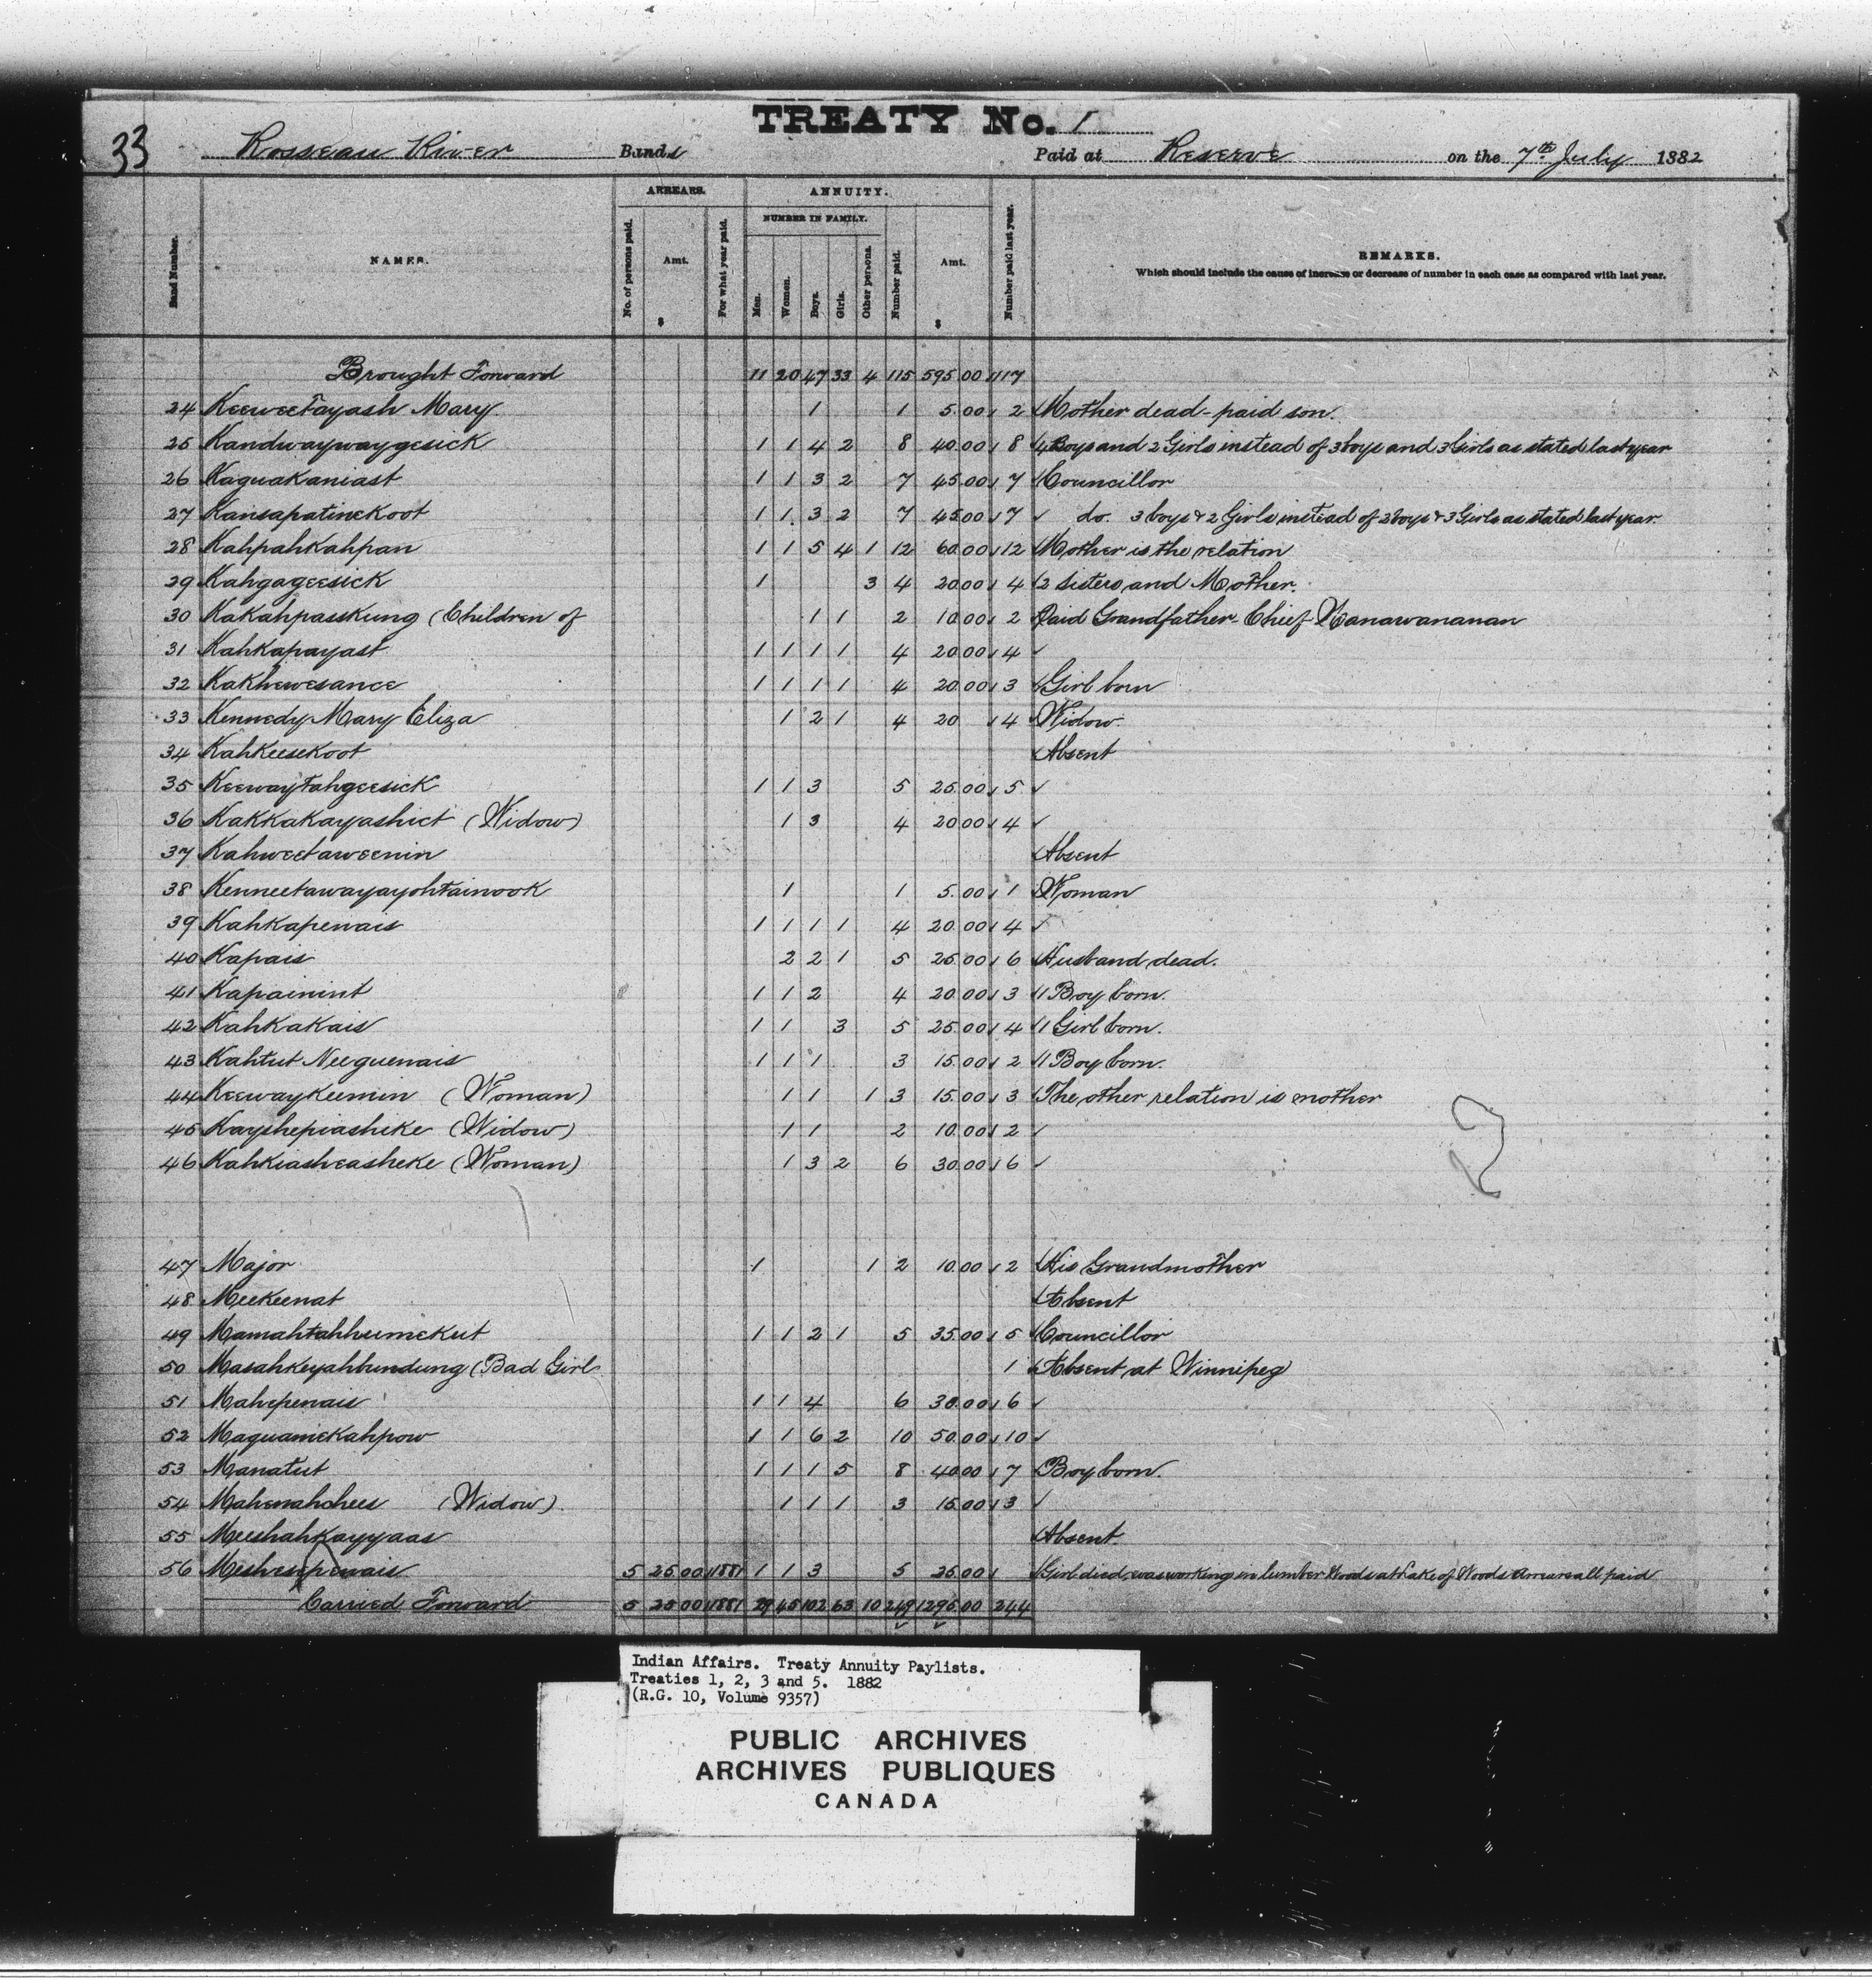 TREATY No. 1
33 Rosseau River Bands Paid at Reserve on the 7th July 1882
ARREARS. ANNUITY.
NUMBER IN FAMILY.
Band Number. NAMES. No. of persons paid. Amt. $ For what year paid. Men. Women. Boys. Girls. Other persons. Number paid. Amt. $ Number paid last year. REMARKS.
Which should include the cause of increase or decrease of number in each case as compared with last year.
Brought Forward 11 20 47 33 4 115 595.00 117
24 Keeweetayash Mary 1 1 5.00 2 Mother dead - paid son.
25 Kandwaywaygesick 1 1 4 2 8 40.00 8 4 Boys and 2 Girls instead of 3 boys and 3 Girls as stated last year
26 Kaguakaniast 1 1 3 2 7 45.00 7 Councillor
27 Kansapatinekoot 1 1 3 2 7 45.00 7 do. 3 boys & 2 Girls instead of 2 boys & 3 Girls as stated last year.
28 Kahpahkahpan 1 1 5 4 1 12 60.00 12 Mother is the relation
29 Kahgageesick 1 3 4 20.00 4 2 sisters and Mother.
30 Kakahpasskung (Children of 1 1 2 10.00 2 Paid Grandfather Chief Nanawananan
31 Kahkapayast 1 1 1 1 4 20.00 4 ✓
32 Kakhewesance 1 1 1 1 4 20.00 3 Girl born
33 Kennedy Mary Eliza 1 2 1 4 20 4 Widow
34 Kahkeesekoot Absent
35 Keewaytahgeesick 1 1 3 5 25.00 5 ✓
36 Kakkakayashict (Widow) 1 3 4 20.00 4 ✓
37 Kahweetaweenin Absent
38 Kenneetawayayohtainook 1 1 5.00 1 Woman
39 Kahkapenais 1 1 1 1 4 20.00 4 ✓
40 Kapais 2 2 1 5 25.00 6 Husband dead.
41 Kapainint 1 1 2 4 20.00 3 1 Boy born.
42 Kahkakais 1 1 3 5 25.00 4 1 Girl born.
43 Kahtut Neeguenais 1 1 1 3 15.00 2 1 Boy born.
44 Keewaykeemin (Woman) 1 1 1 3 15.00 3 The other relation is mother
45 Kayshepiashike (Widow) 1 1 2 10.00 2 ✓
46 Kahkiasheasheke (Woman) 1 3 2 6 30.00 6 ✓
47 Major 1 1 2 10.00 2 His Grandmother
48 Meekeenat Absent
49 Mamahtahhumekut 1 1 2 1 5 35.00 5 Councillor
50 Masahkeyahhundung (Bad Girl 1 Absent at Winnipeg
51 Mahepenais 1 1 4 6 30.00 6 ✓
52 Maguamekahpow 1 1 6 2 10 50.00 10 ✓
53 Manatut 1 1 1 5 8 40.00 7 Boy born.
54 Mahenahchees (Widow) 1 1 1 3 15.00 3 ✓
55 Meeshahkayyaas Absent.
56 Meshesepenais 5 25.00 1881 1 1 3 5 25.00 Girl died, was working in lumber Woods at Lake of Woods Arrears all paid
Carried Forward 5 25.00 1881 29 45 102 63 10 249 1295.00 244
Indian Affairs. Treaty Annuity Paylists.
Treaties 1, 2, 3 and 5. 1882
(R.G. 10, Volume 9357)
PUBLIC ARCHIVES
ARCHIVES PUBLIQUES
CANADA